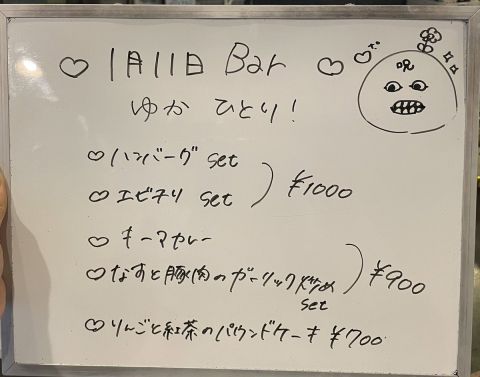 ♡ 1月11日 Bar ♡
ゆか ひとり!
呪
♡ ハンバーグ set
♡ エビチリ set
¥1000
♡ キーマカレー
♡ なすと豚肉のガーリック炒め
set
¥900
♡ りんごと紅茶のパウンドケーキ ¥700